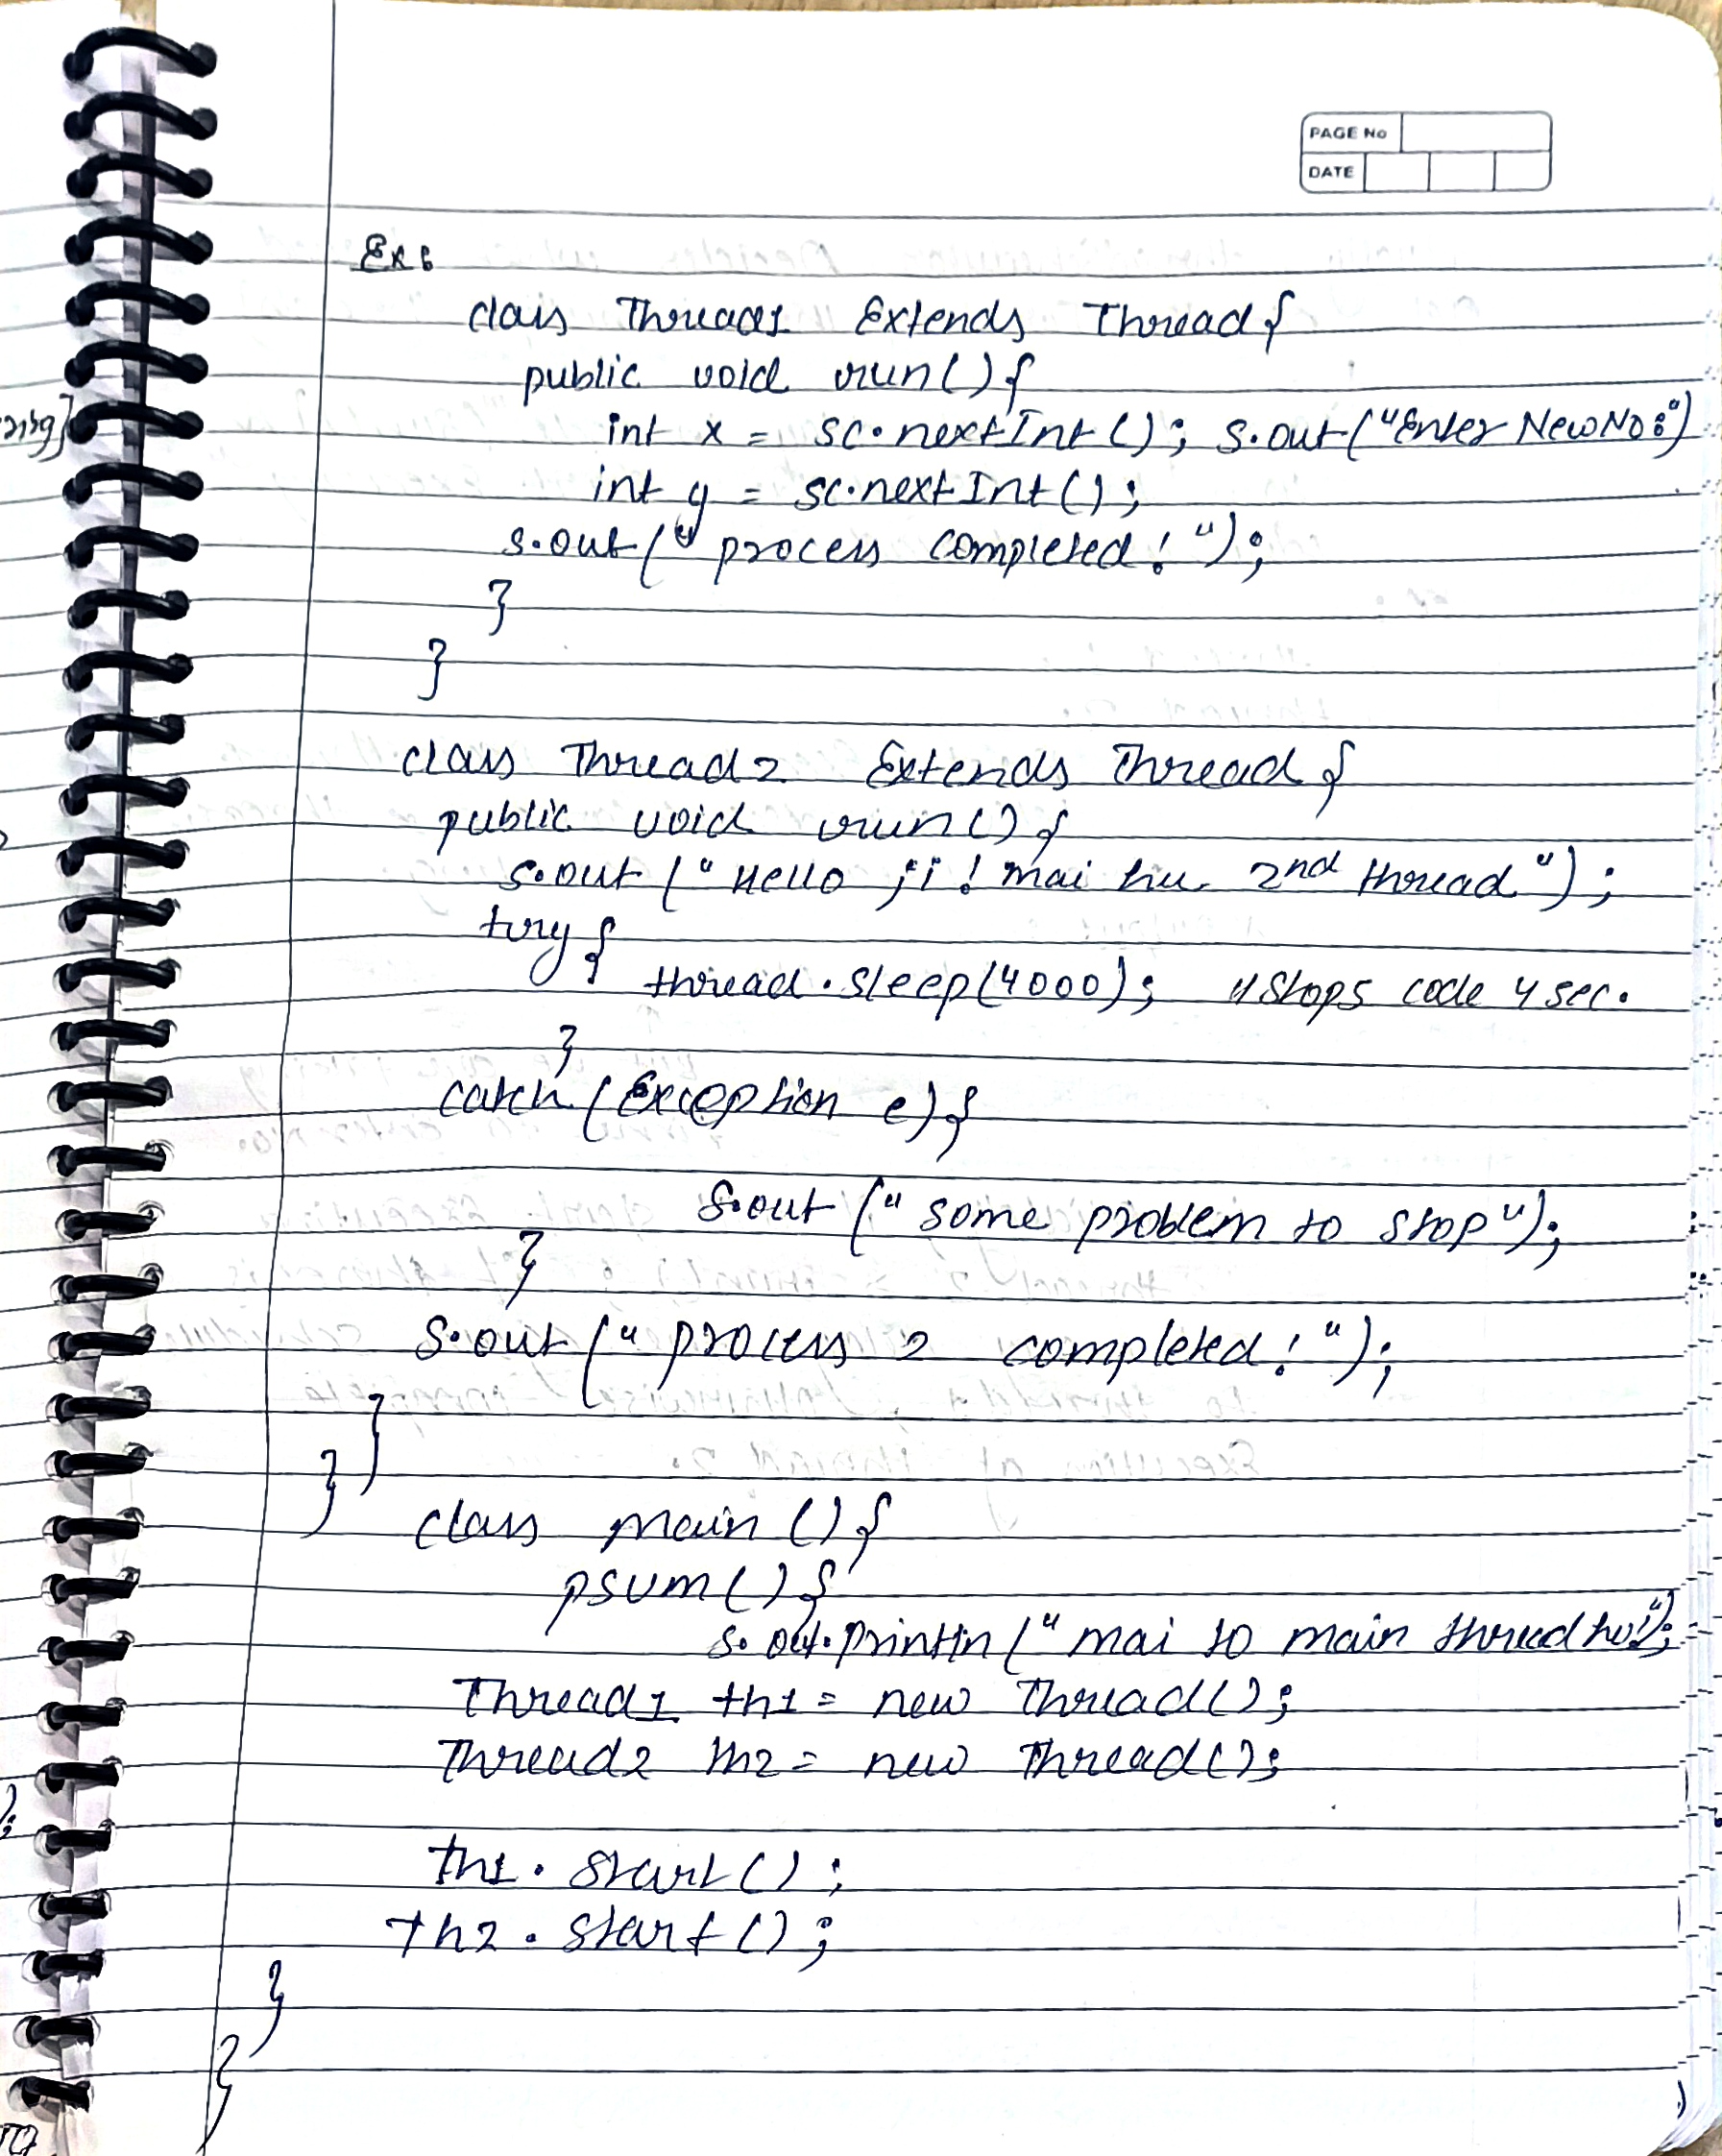 PAGE No
DATE
Ex:
class Thread1 Extends Thread{
public void run(){
int x = sc.nextInt(); S.out("Enter New No:")
int y = sc.nextInt();
s.out(" process completed! ");
}
}
class Thread2 Extends Thread{
public void run(){
S.out (" Hello ji! mai hu 2nd thread ");
try{
thread.sleep(4000); // Stops code 4 sec.
}
catch (Exception e){
S.out (" some problem to stop");
}
S.out (" process 2 completed! ");
}
}
class main (){
psum(){
s.out.println (" mai to main thread hu");
Thread1 th1 = new Thread();
Thread2 th2 = new Thread();
th1. start();
th2. start();
}
}